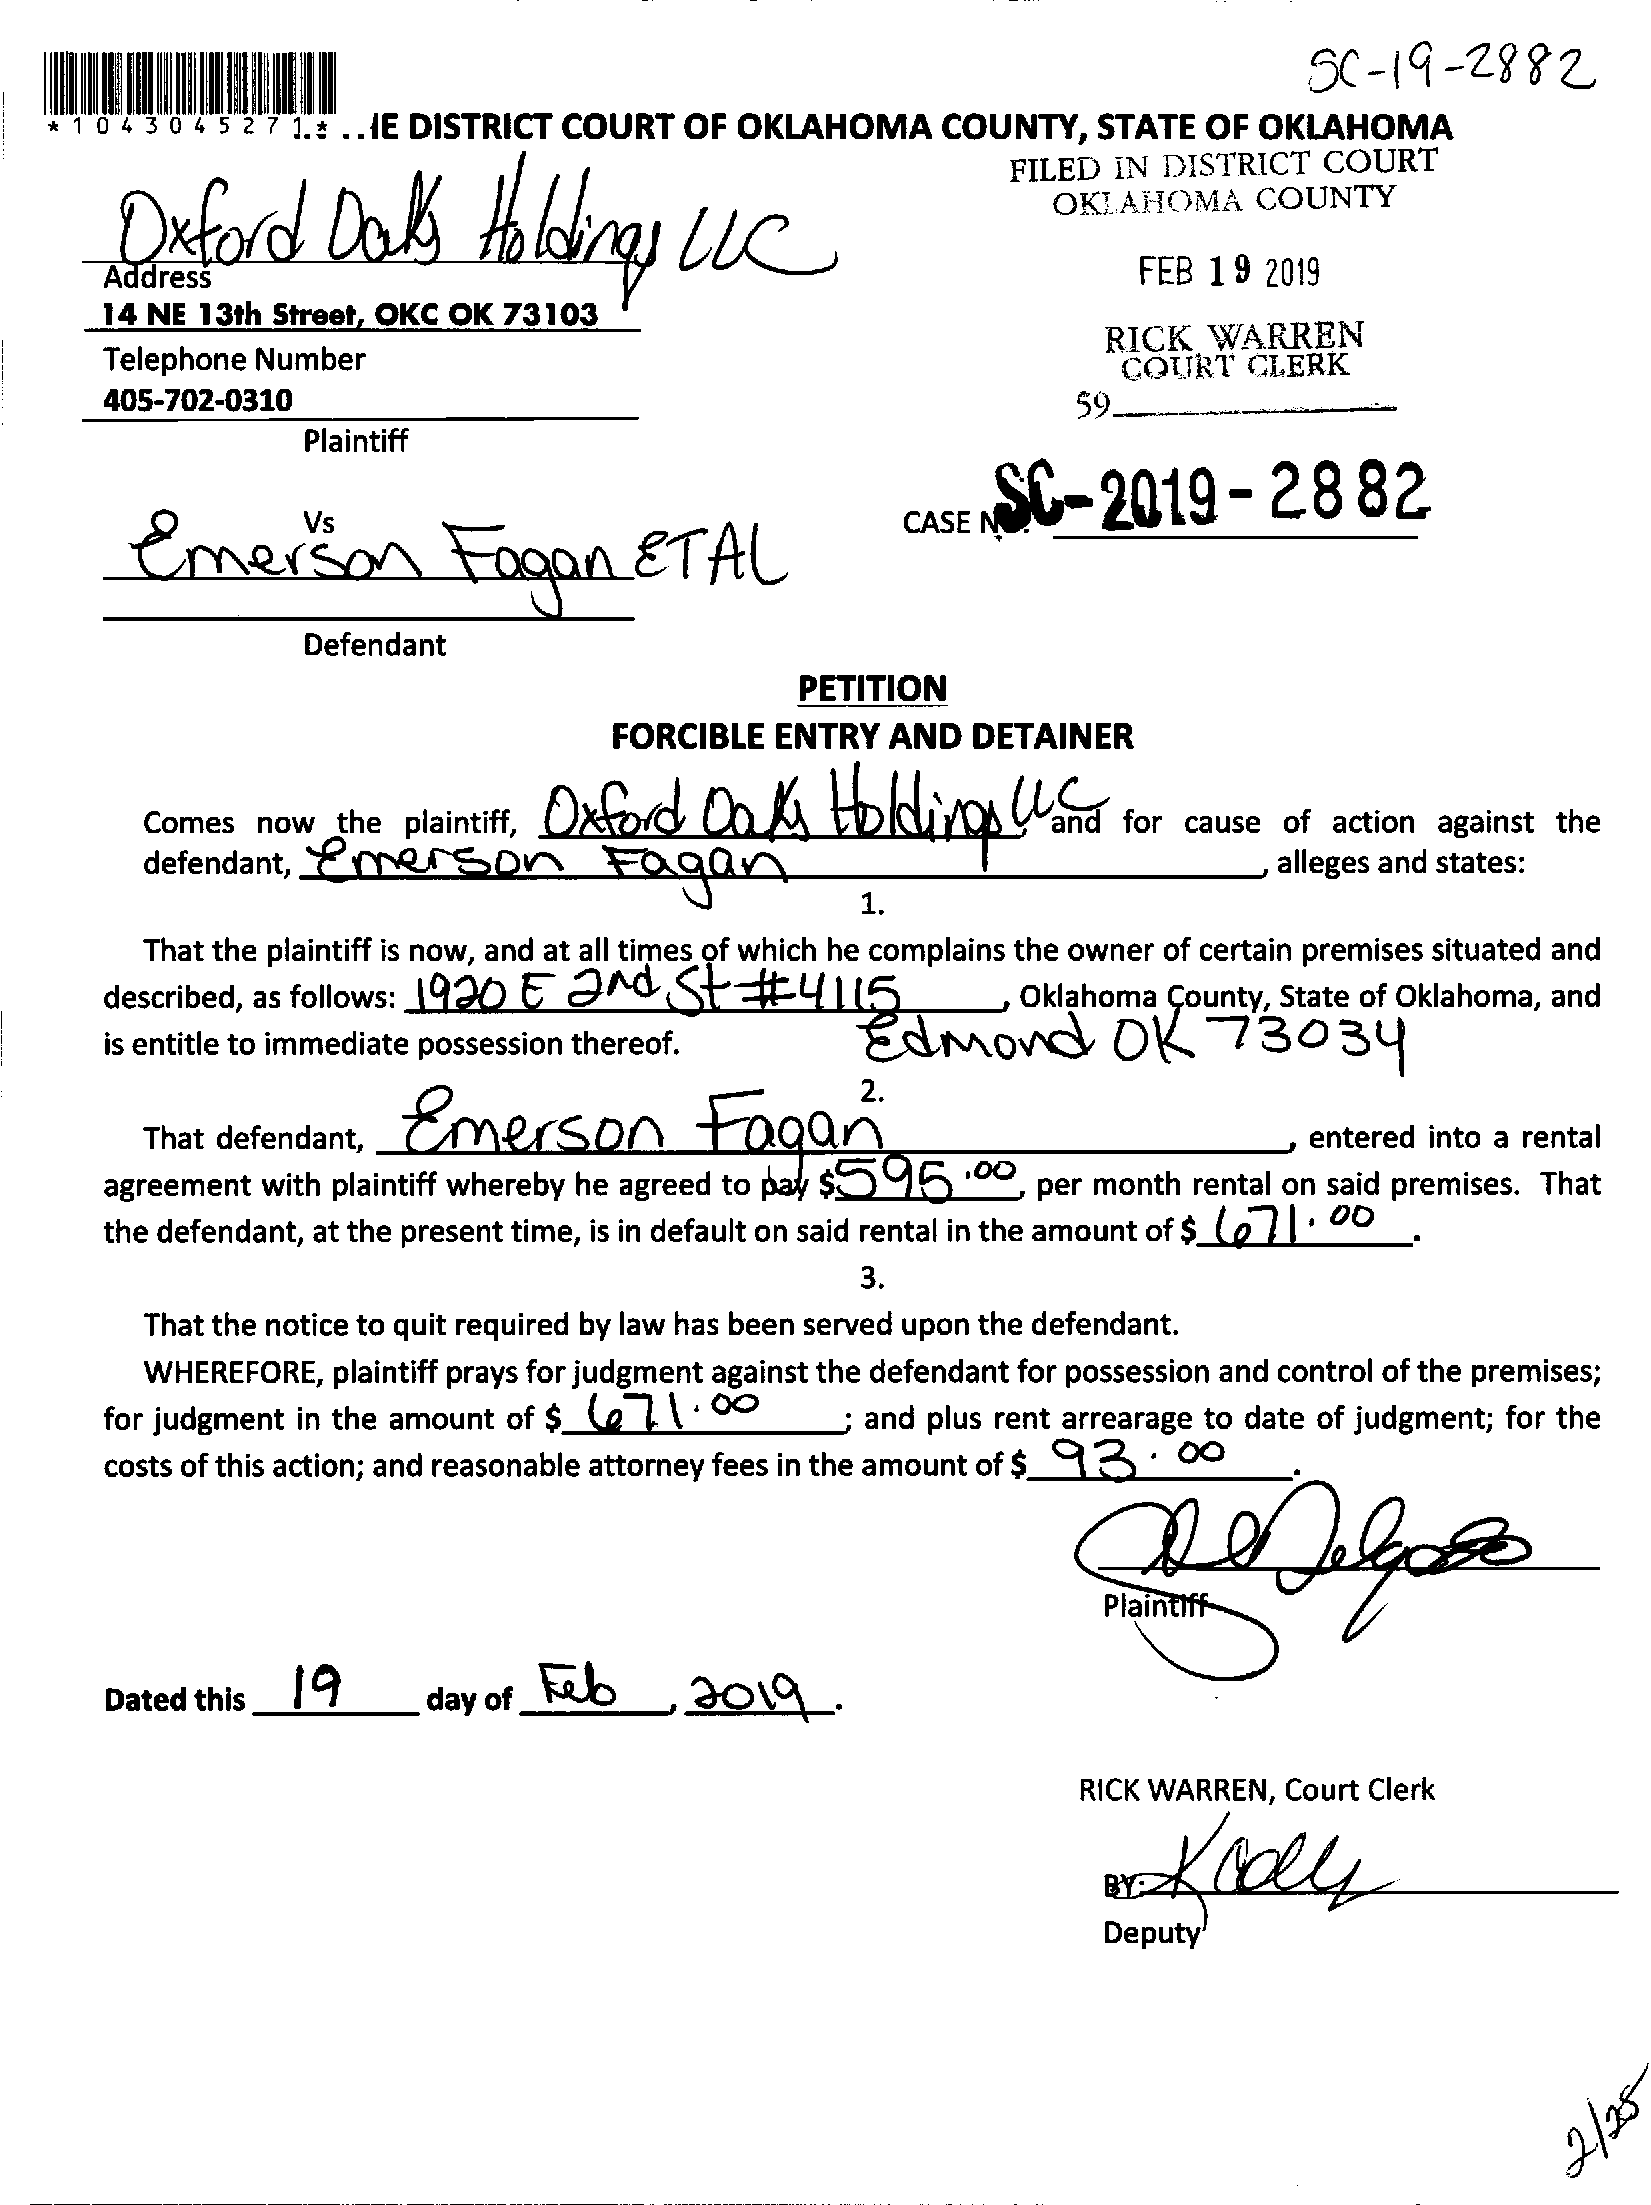 SC-19-2882
*1043045271* ..IE DISTRICT COURT OF OKLAHOMA COUNTY, STATE OF OKLAHOMA
FILED IN DISTRICT COURT
OKLAHOMA COUNTY
Oxford Oaks Holdings LLC
FEB 19 2019
Address
14 NE 13th Street, OKC OK 73103
RICK WARREN
COURT CLERK
Telephone Number
405-702-0310
59
Plaintiff
CASE NO. SC-2019-2882
Vs
Emerson Fagan ETAL
Defendant
PETITION
FORCIBLE ENTRY AND DETAINER
Comes now the plaintiff, Oxford Oaks Holdings LLC and for cause of action against the
defendant, Emerson Fagan, alleges and states:
1.
That the plaintiff is now, and at all times of which he complains the owner of certain premises situated and
described, as follows: 1920 E 2nd St #4115, Oklahoma County, State of Oklahoma, and
is entitle to immediate possession thereof. Edmond OK 73034
2.
That defendant, Emerson Fagan, entered into a rental
agreement with plaintiff whereby he agreed to pay $595.00, per month rental on said premises. That
the defendant, at the present time, is in default on said rental in the amount of $ 671.00.
3.
That the notice to quit required by law has been served upon the defendant.
WHEREFORE, plaintiff prays for judgment against the defendant for possession and control of the premises;
for judgment in the amount of $ 671.00; and plus rent arrearage to date of judgment; for the
costs of this action; and reasonable attorney fees in the amount of $ 93.00.
Plaintiff
Dated this 19 day of Feb, 2019.
RICK WARREN, Court Clerk
BY:
Deputy
2/25